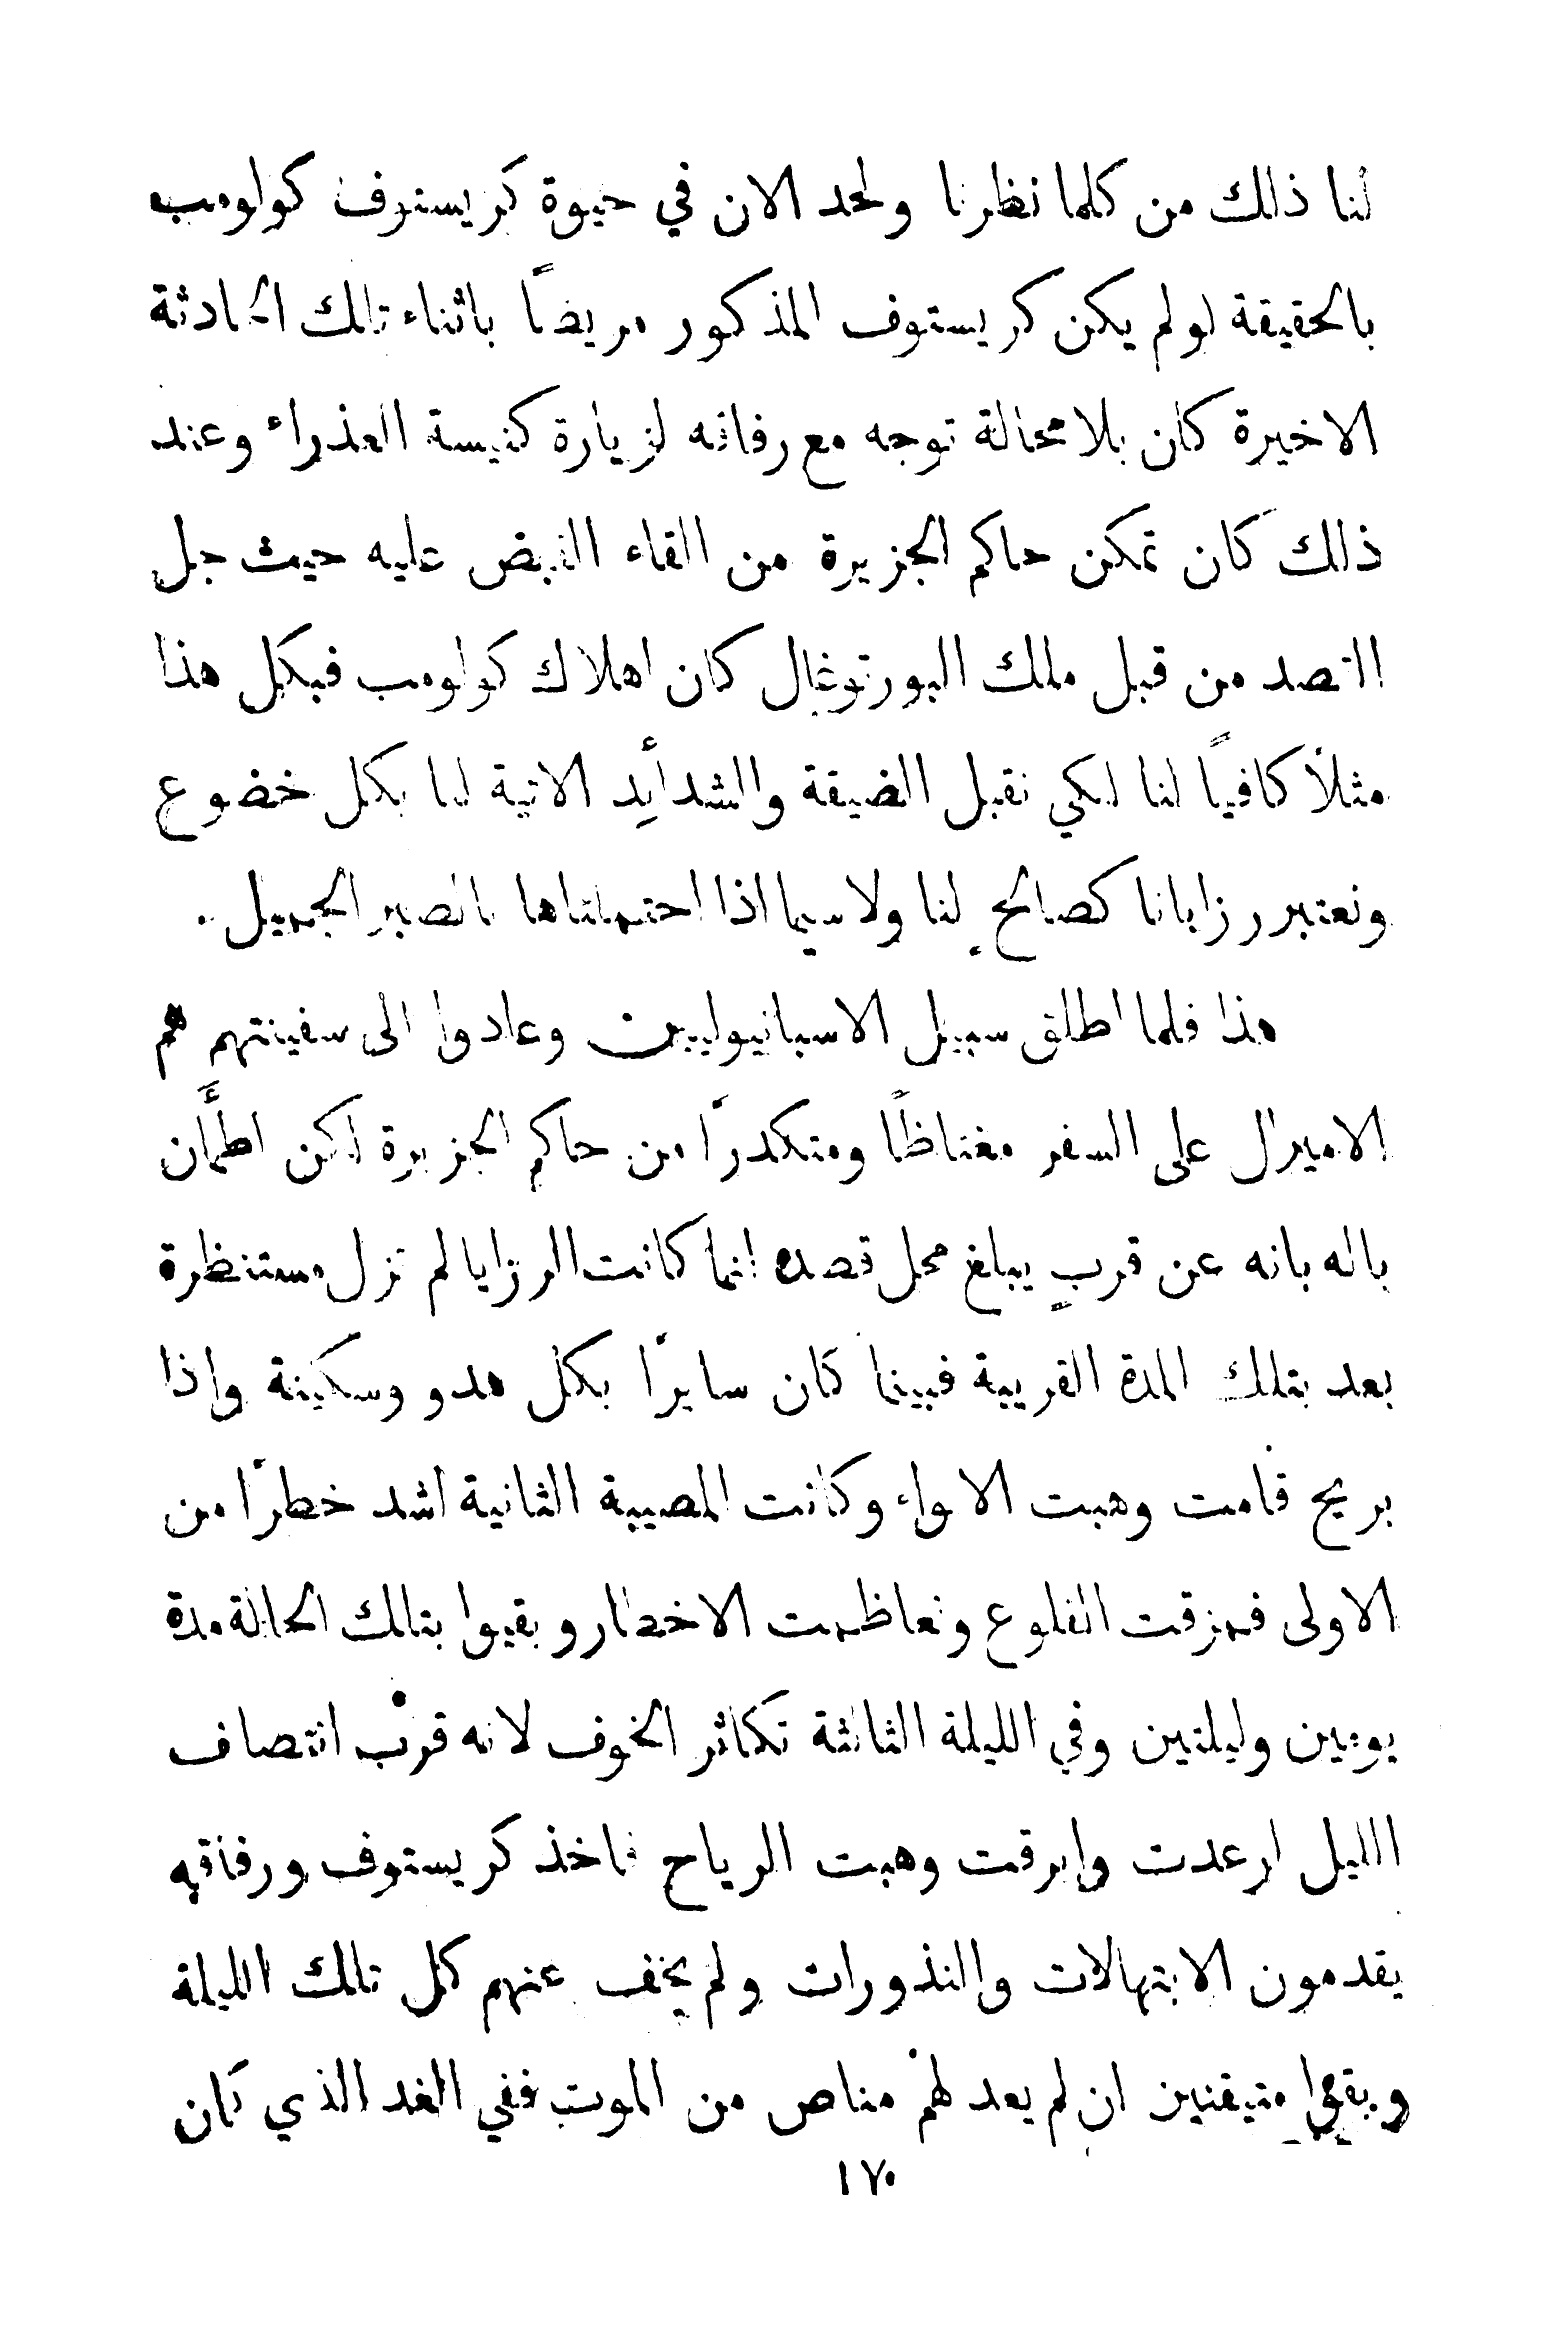 لنا ذلك من كلما نظرنا ولحد الان في حيوة كريستوف كولومب
بالحقيقة لو لم يكن كريستوف المذكور مريضًا باثناء تلك الحادثة
الاخيرة كان بلا محالة توجه مع رفاقه لزيارة كنيسة العذراء وعند
ذلك كان تمكن حاكم الجزيرة من القاء القبض عليه حيث جل
القصد من قبل ملك البورتوغال كان اهلاك كولومب فبكل هذا
مثلاً كافيًا لنا لكي نقبل الضيقة والشدأيد الاتية لنا بكل خضوع
ونعتبر رزايانا كصالحٍ لنا ولا سيما اذا احتملناها بالصبر الجميل.
هذا فلما اطلق سبيل الاسبانيوليين وعادوا الى سفينتهم هم
الاميرال على السفر مغتاظًا ومتكدرًا من حاكم الجزيرة لكن اطمَّأن
باله بانه عن قربٍ يبلغ محل قصده انما كانت الرزايا لم تزل مستنظرة
بعد بتلك المدة القريبة فبينما كان سايرًا بكل هدو وسكينة واذا
بريح قامت وهبت الاواء وكانت المصيبة الثانية اشد خطرًا من
الاولى فمزقت القلوع وتعاظمت الاخطار وبقيوا بتلك الحالة مدة
يومين وليلتين وفي الليلة الثالثة تكاثر الخوف لانه قرب انتصاف
الليل ارعدت وابرقت وهبت الرياح فاخذ كريستوف ورفاقه
يقدمون الابتهالات والنذورات ولم يخف عنهم كل تلك الليلة
وبقوا متيقنين ان لم يعد لهم مناص من الموت ففي الغد الذي كان
١٧٠